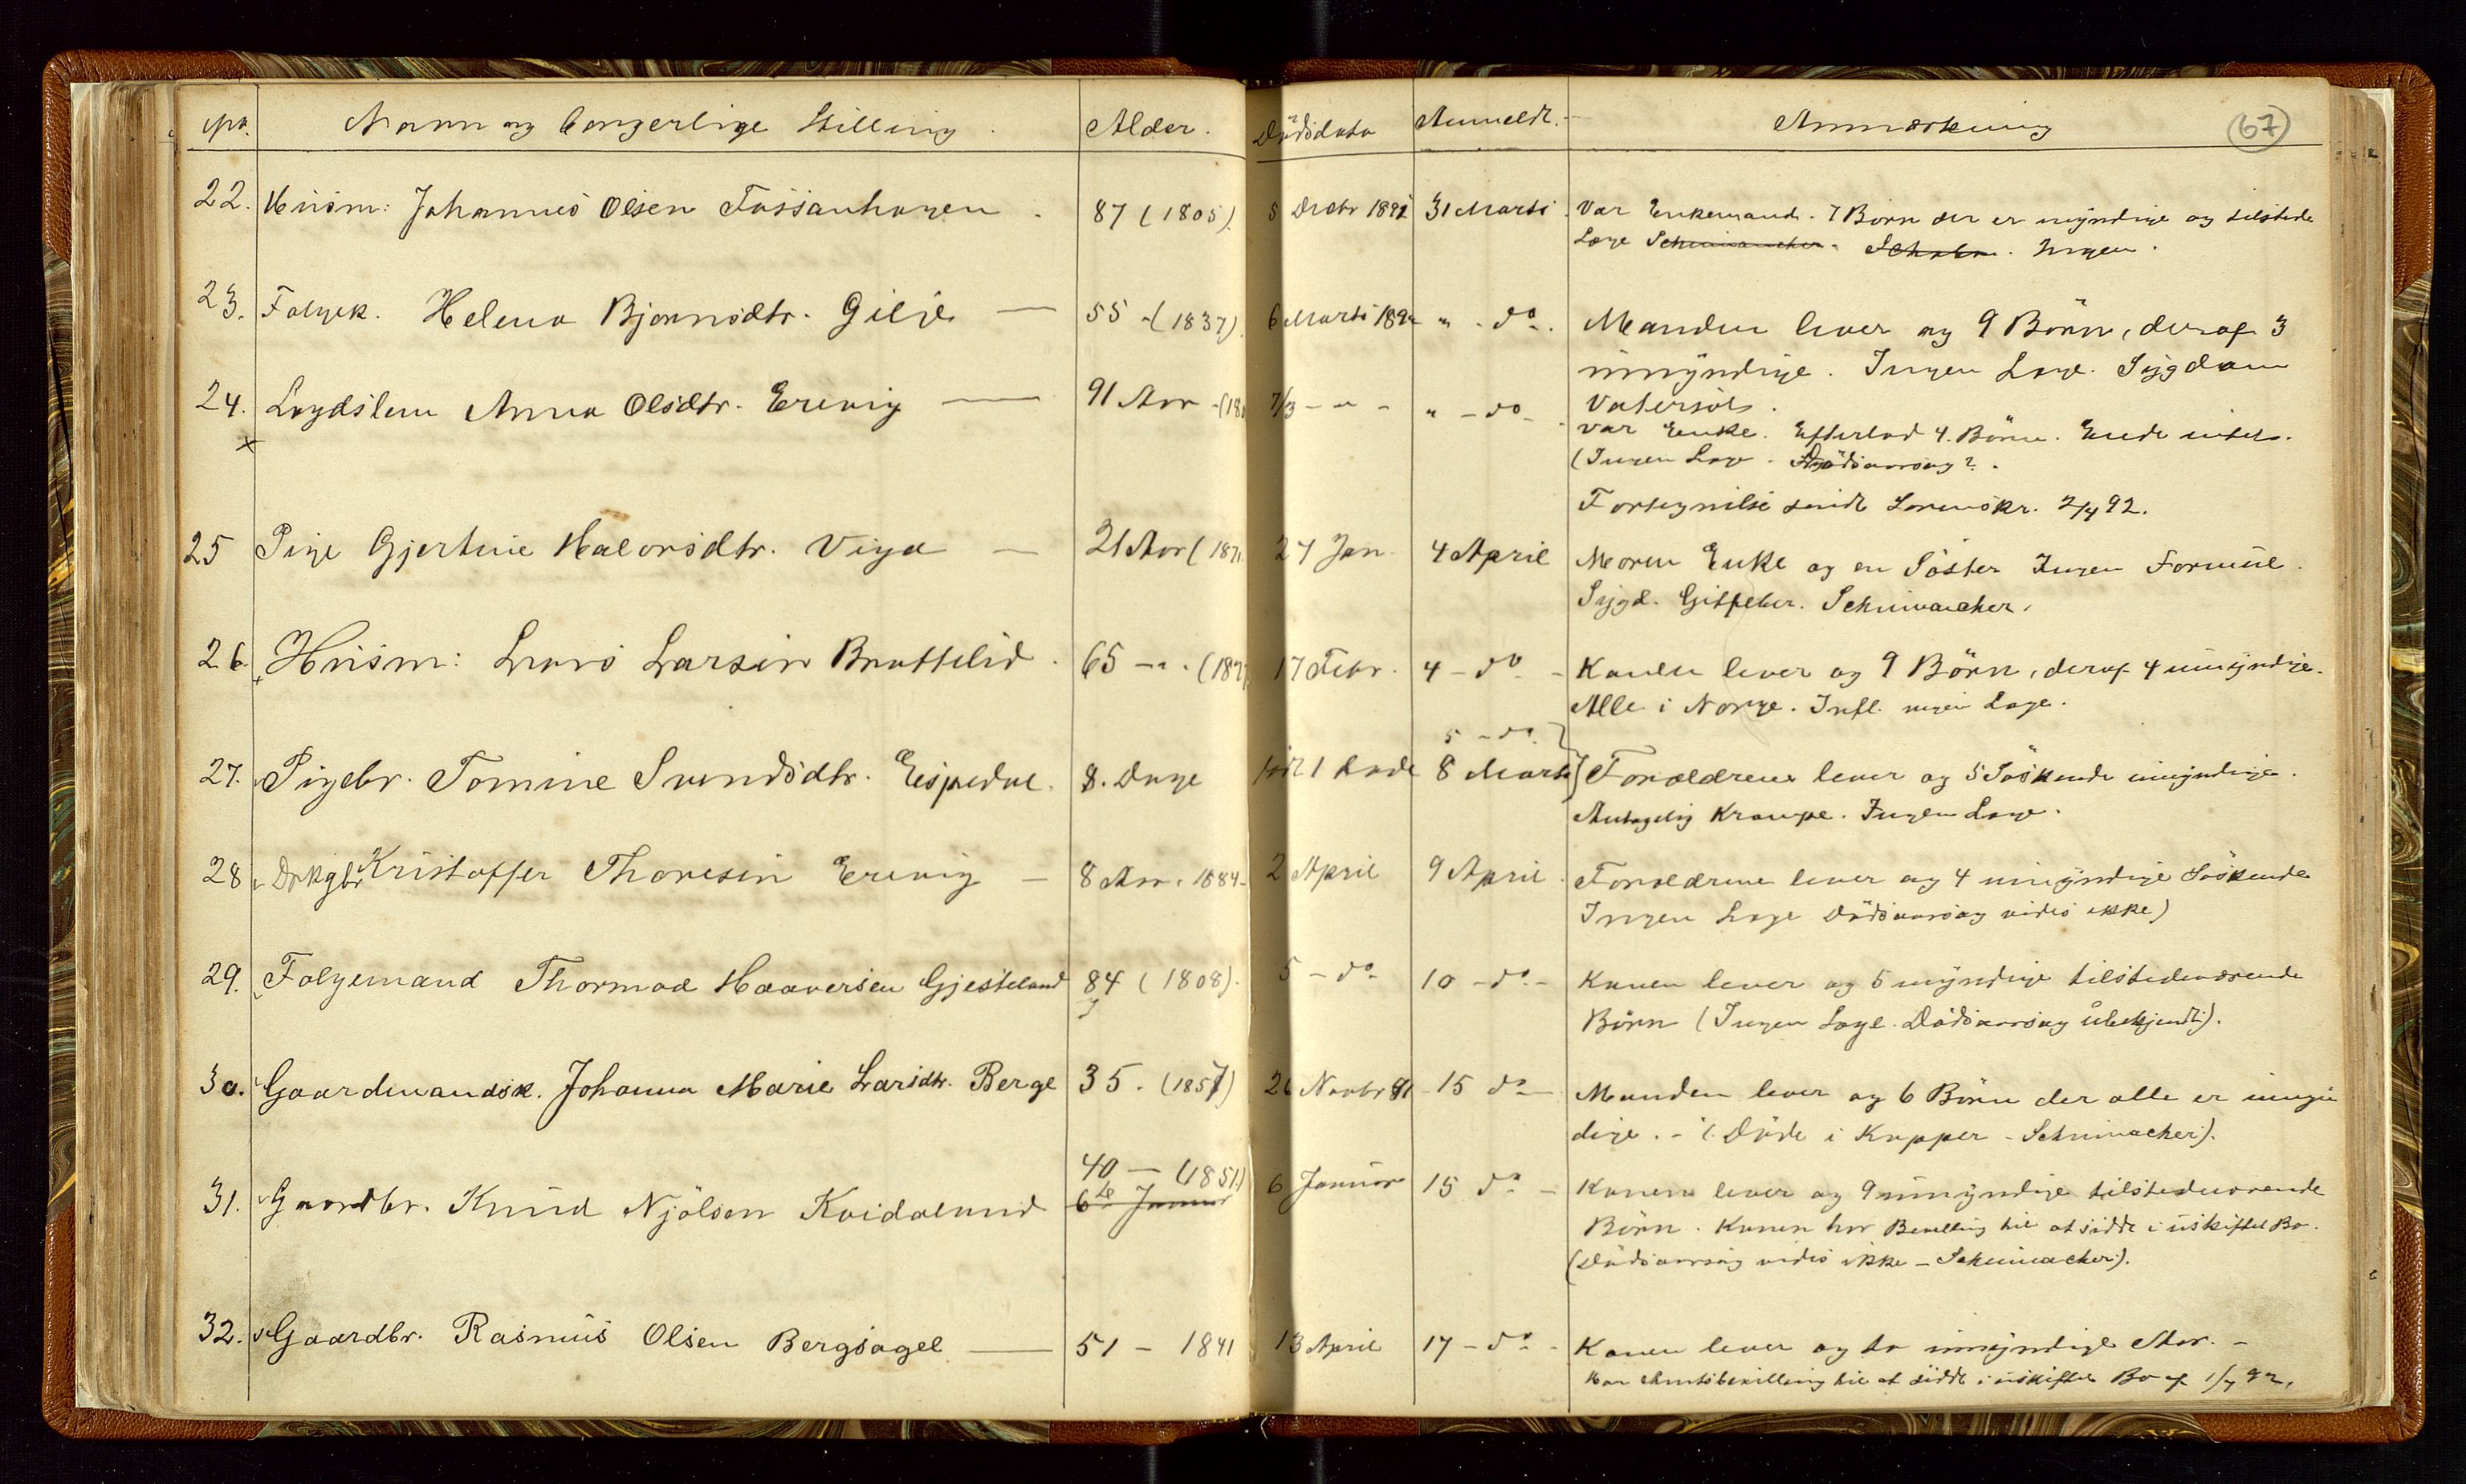 No. Navn og borgerlige Stilling. Alder. Dödsdato Anmeldt. Anmærkning (67)
22. Husm: Johannes Olsen Fossanhagen. 87 (1805). 5 Decbr 1891 31 Marts Var Enkemand. 7 Börn der er myndige og tilstede
Læge Schumacher. Ingen.
23. Folgek. Helena Bjørnsdtr. Gilje — 55 - (1837). 6 Marts 1892 " - do. Manden lever og 9 Börn, deraf 3
umyndige. Ingen Læge. Sygdom
Vatersot.
24. Lægdslem Anna Olsdtr. Erevig — 91 Aar - (180 7/3 - " - " - do - Var Enke. Efterlod 4. Börn. Eiede intet.
x
(Ingen Læge. Dödsaarsag?.
Fortegnilse sendt Sorenskr. 2/4 92.
25 Pige Gjertine Halvorsdtr. Viga — 21 Aar (1871 27 Jan. 4 April Moren Enke og en Söster Ingen Formue.
Sygd. Gitfeber. Schumacher.
26. Husm: Lars Larsen Brattelid. 65 - " . (182 17 Febr. 4 - do - Konen lever og 9 Börn, deraf 4 umyndige.
Alle i Norge. Infl. ingen Læge.
5 - do }
27. Pigebr. Tomine Svendsdtr. Eispedal. 8. Dage født 1 døde 8 Marts } Forældrene lever og 5 Söskende umyndige.
Antagelig Krampe. Ingen Læge.
28 Drkgbr Kristoffer Thoresen Erevig — 8 Aar. 1884 - 2 April 9 April. Forældrene lever og 4 umyndige Söskende
Ingen Læge Dödsaarsag vides ikke)
29. Folgemand Thormod Haaversen Gjesteland 84 (1808). 5 - do - 10 - do - Konen lever og 5 myndige tilstedeværende
Börn (Ingen Læge. Dödsaarsag ubekjendt).
30. Gaardmandsk. Johanna Marie Larsdtr. Berge 35. (1857) 26 Novbr 91 - 15 do - Manden lever og 6 Börn der alle er umyn
dige. - (: Döde i Kopper - Schumacher:).
40 — (1851)
31. Gaardbr. Knud Njölsen Kvidalund 6te Januar 6 Januar 15 do - Konen lever og 9 umyndige tilstedeværende
Börn. Konen har Bevilling til at sidde i uskiftet Bo.
(Dödsaarsag vides ikke - Schumacher:).
32. Gaardbr. Rasmus Olsen Bergsagel — 51 - 1841 13 April 17 - do - Konen lever og to umyndige Stør. -
Har Amtsbevilling til at sidde i uskiftet Bo af 1/7 92.